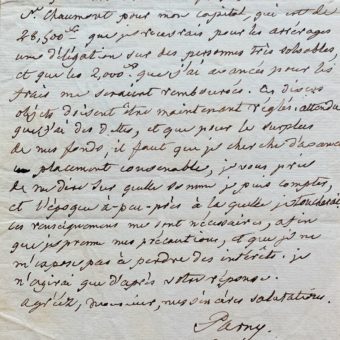 Sr. Chaumont pour mon capital, qui est de
28,500lt. que je recevrais pour les arrérages
une délégation sur des personnes très solvables,
et que les 2,000lt. que j'ai avancés pour les
frais me seraient remboursés. Ces divers
objets doivent être maintenant réglés. attendu
que j'ai des dettes, et que pour le surplus
de mes fonds, il faut que je cherche d'avance
un placement convenable, je vous prie
de me dire sur quelle somme je puis compter,
et l'époque à-peu-près à la quelle je toucherai.
ces renseignements me sont nécessaires, afin
que je prenne mes précautions, et que je ne
m'expose pas à perdre des intérêts. je
n'agirai que d'après votre réponse.
agréez, monsieur, mes sincères salutations.
Parny.